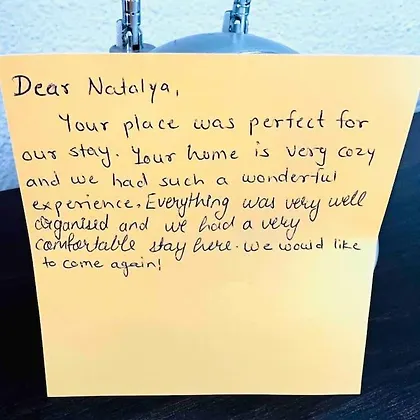 Dear Natalya,
Your place was perfect for
our stay. Your home is very cozy
and we had such a wonderful
experience. Everything was very well
organised and we had a very
comfortable stay here. We would like
to come again!